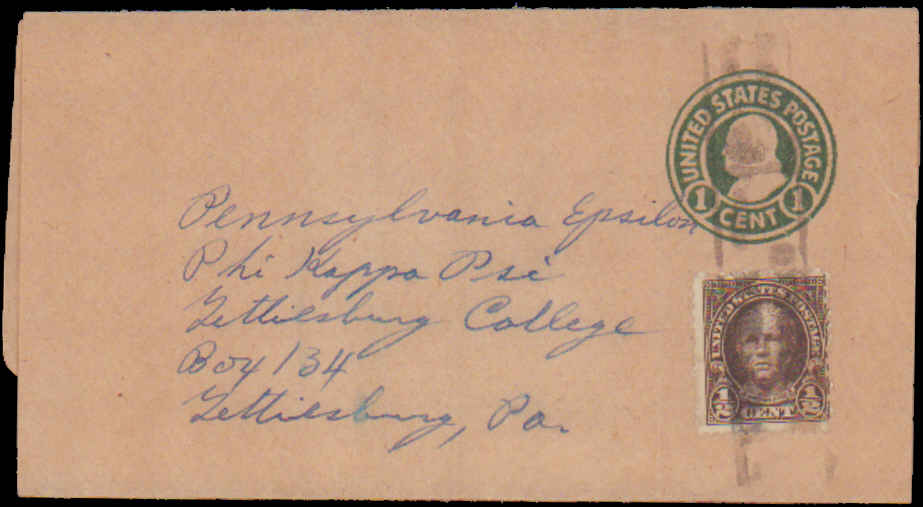 UNITED STATES POSTAGE
1 CENT 1
Pennsylvania Epsilon
Phi Kappa Psi
Gettiesburg College
Box 134
Gettiesburg, Pa.
UNITED STATES POSTAGE
1/2 CENT 1/2